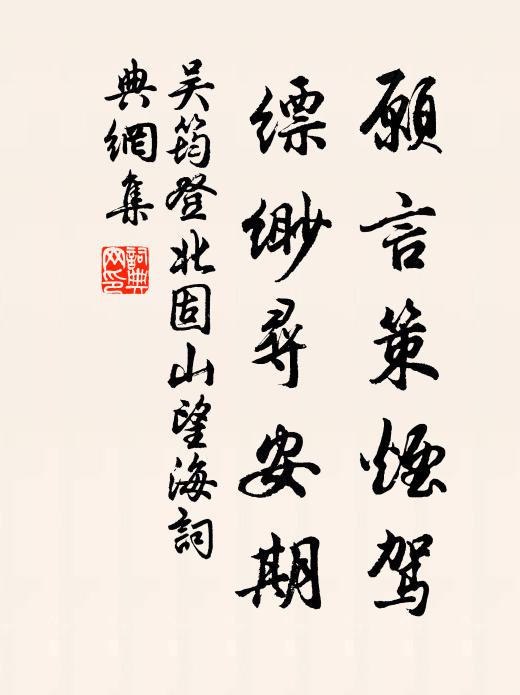 願言策煙駕
縹緲尋安期
吳筠登北固山望海詞
典網集
詞典
网印